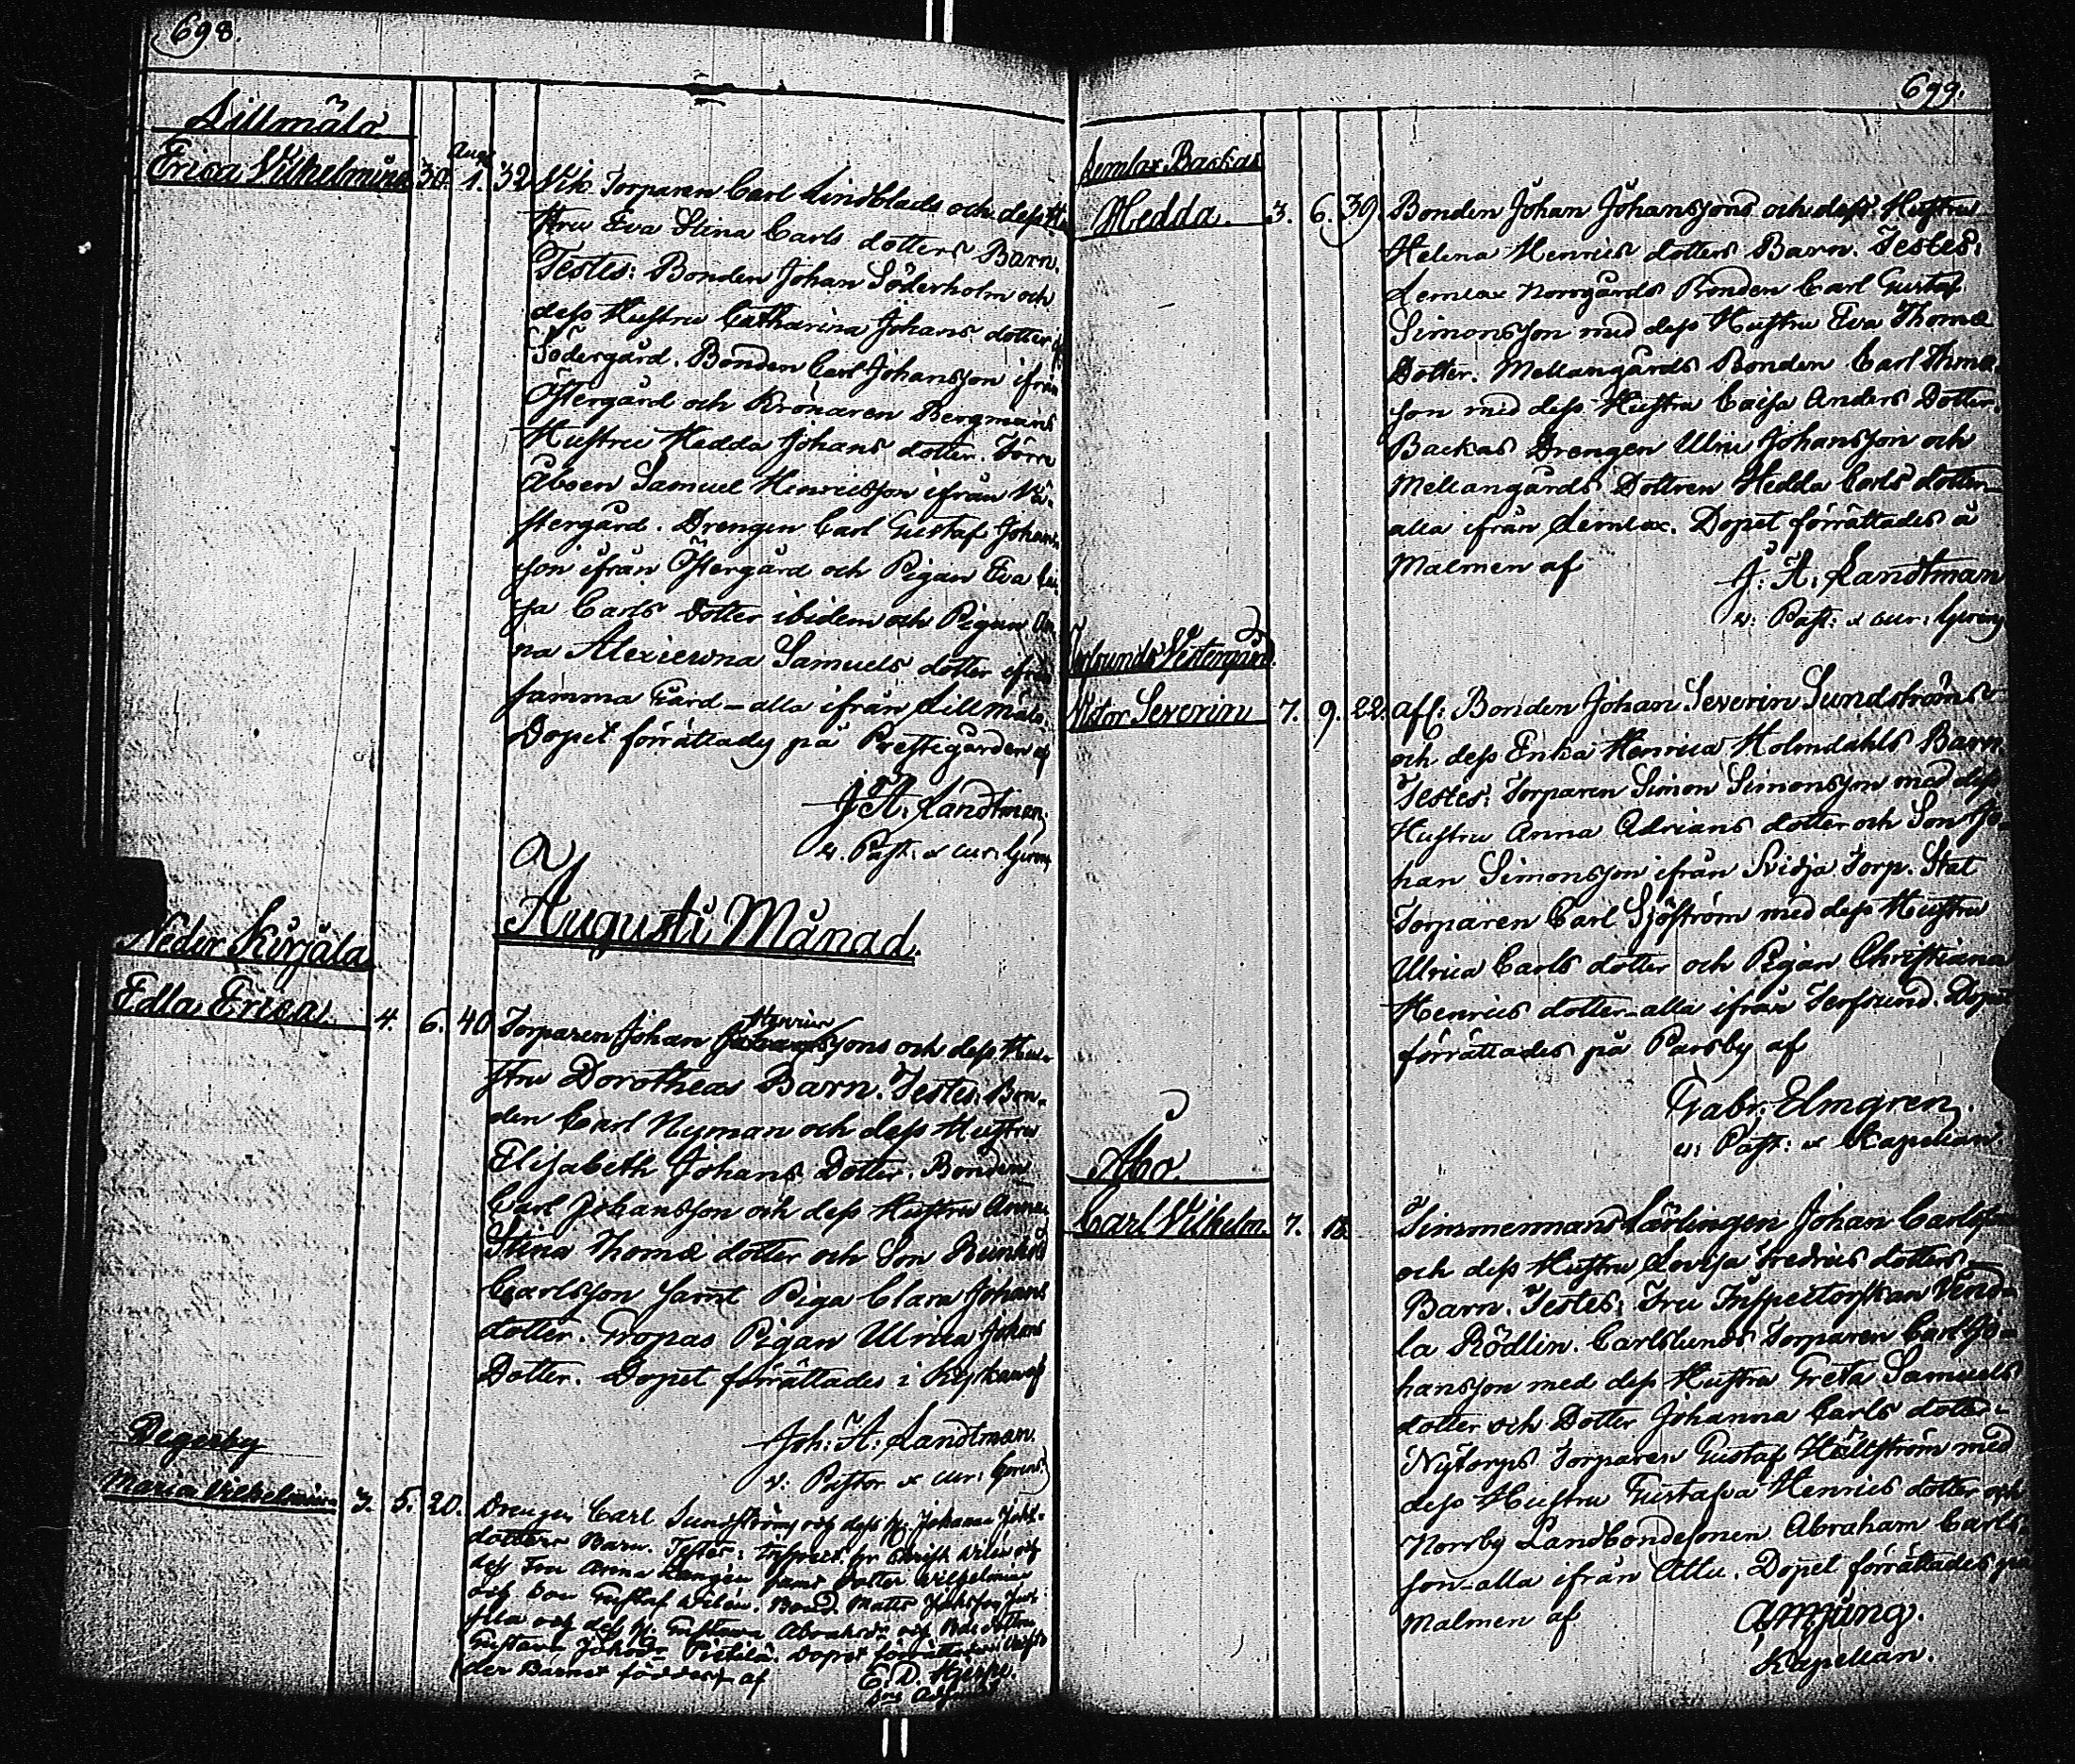 698.
Lillmälö
Erica Vilhelmina 30. Aug. 1. 32
Vik Torparen Carl Lindblads och dess Hu
stru Eva Stina Carls dotters Barn.
Testes: Bonden Johan Söderholm och
dess Hustru Catharina Johans dotter if
Södergård. Bonden Carl Johansson ifrån
Östergård och Krönaren Bergmans
Hustru Hedda Johans dotter.
Åboen Samuel Henricsson ifrån Vä-
stergård. Drengen Carl Gustaf Johans-
son ifrån Östergård och Pigan Eva Lui-
sa Carls dotter ibidem och Pigan An
na Alexiewna Samuels dotter ifrån
samma Gård – alla ifrån Lillmälö.
Dopet förrättades på Prestgården af
J. A. Landtman
v. Past. & cur. Gerens
Augusti Månad.
Neder Kirjala
Edla Erica. 4. 6. 40
Torparen Johan Henricssons och dess Hu-
stru Dorotheas Barn. Testes: Bon-
den Carl Nyman och dess Hustru
Elisabeth Johans Dotter. Bonden
Carl Johansson och dess Hustru Anna
Stina Thomæ dotter och Son Reinhold
Carlsson samt Piga Clara Johans
dotter. Gropas Pigan Ulrica Johans
Dotter. Dopet förrättades i Kyrkan af
Joh: A: Landtman.
v. Pastor & cur. Gerens
Degerby
Maria Vilhelmina 3. 5. 20.
Drengen Carl Sundströms och dess H. Johanna Joh:s
dotters Barn. Testes: Inspect.
dess Fru Anna samt dotter Wilhelmina
och Son Gustaf Bond. Matts
och dess H. Gustava Abrahams och
Gustava Dopet förrättades
der Barnet föddes, af
E. D. Hjerpe.
699.
Lemlax Backas
Hedda. 3. 6. 39.
Bonden Johan Johanssons och dess Hustru
Helena Henrics dotters Barn. Testes:
Lemlax Norrgårds Bonden Carl Gustaf
Simonsson med dess Hustru Eva Thomæ
Dotter. Mellangårds Bonden Carl Thomæ
son med dess Hustru Caisa Anders Dotter.
Backas Drengen Ulric Johansson och
Mellangårds Dottren Hedda Carls dotter –
alla ifrån Lemlax. Dopet förrättades å
Malmen af
J: A: Landtman
v: Past: & cur: Gerens
Terfsunds Vestergård.
Victor Severin 7. 9. 22.
Afl: Bonden Johan Severin Sundströms
och dess Enka Henrica Holmdahls Barn.
Testes: Torparen Simon Simonsson med dess
Hustru Anna Adrians dotter och Son Jo-
han Simonsson ifrån Svidja Torp. Stat
Torparen Carl Sjöström med dess Hustru
Ulrica Carls dotter och Pigan Christiana
Henrics dotter – alla ifrån Terfsund. Dopet
förrättades på Parsby af
Gabr: Elmgren.
v: Past: & Kapellan
Åbo.
Carl Vilhelm. 7. 18.
Timmermans Lärlingen Johan Carlsson
och dess Hustru Lovisa Fredrics dotters
Barn. Testes: Fru Inspectorskan Vend-
la Rödlin. Carlslunds Torparen Carl Jo-
hansson med dess Hustru Greta Samuels
dotter och Dotter Johanna Carls dotter.
Nytorps Torparen Gustaf Hällström med
dess Hustru Gustafva Henrics dotter och
Norrby Landbondesonen Abraham Carls-
son – alla ifrån Attu. Dopet förrättades på
Malmen af
Kapellan.